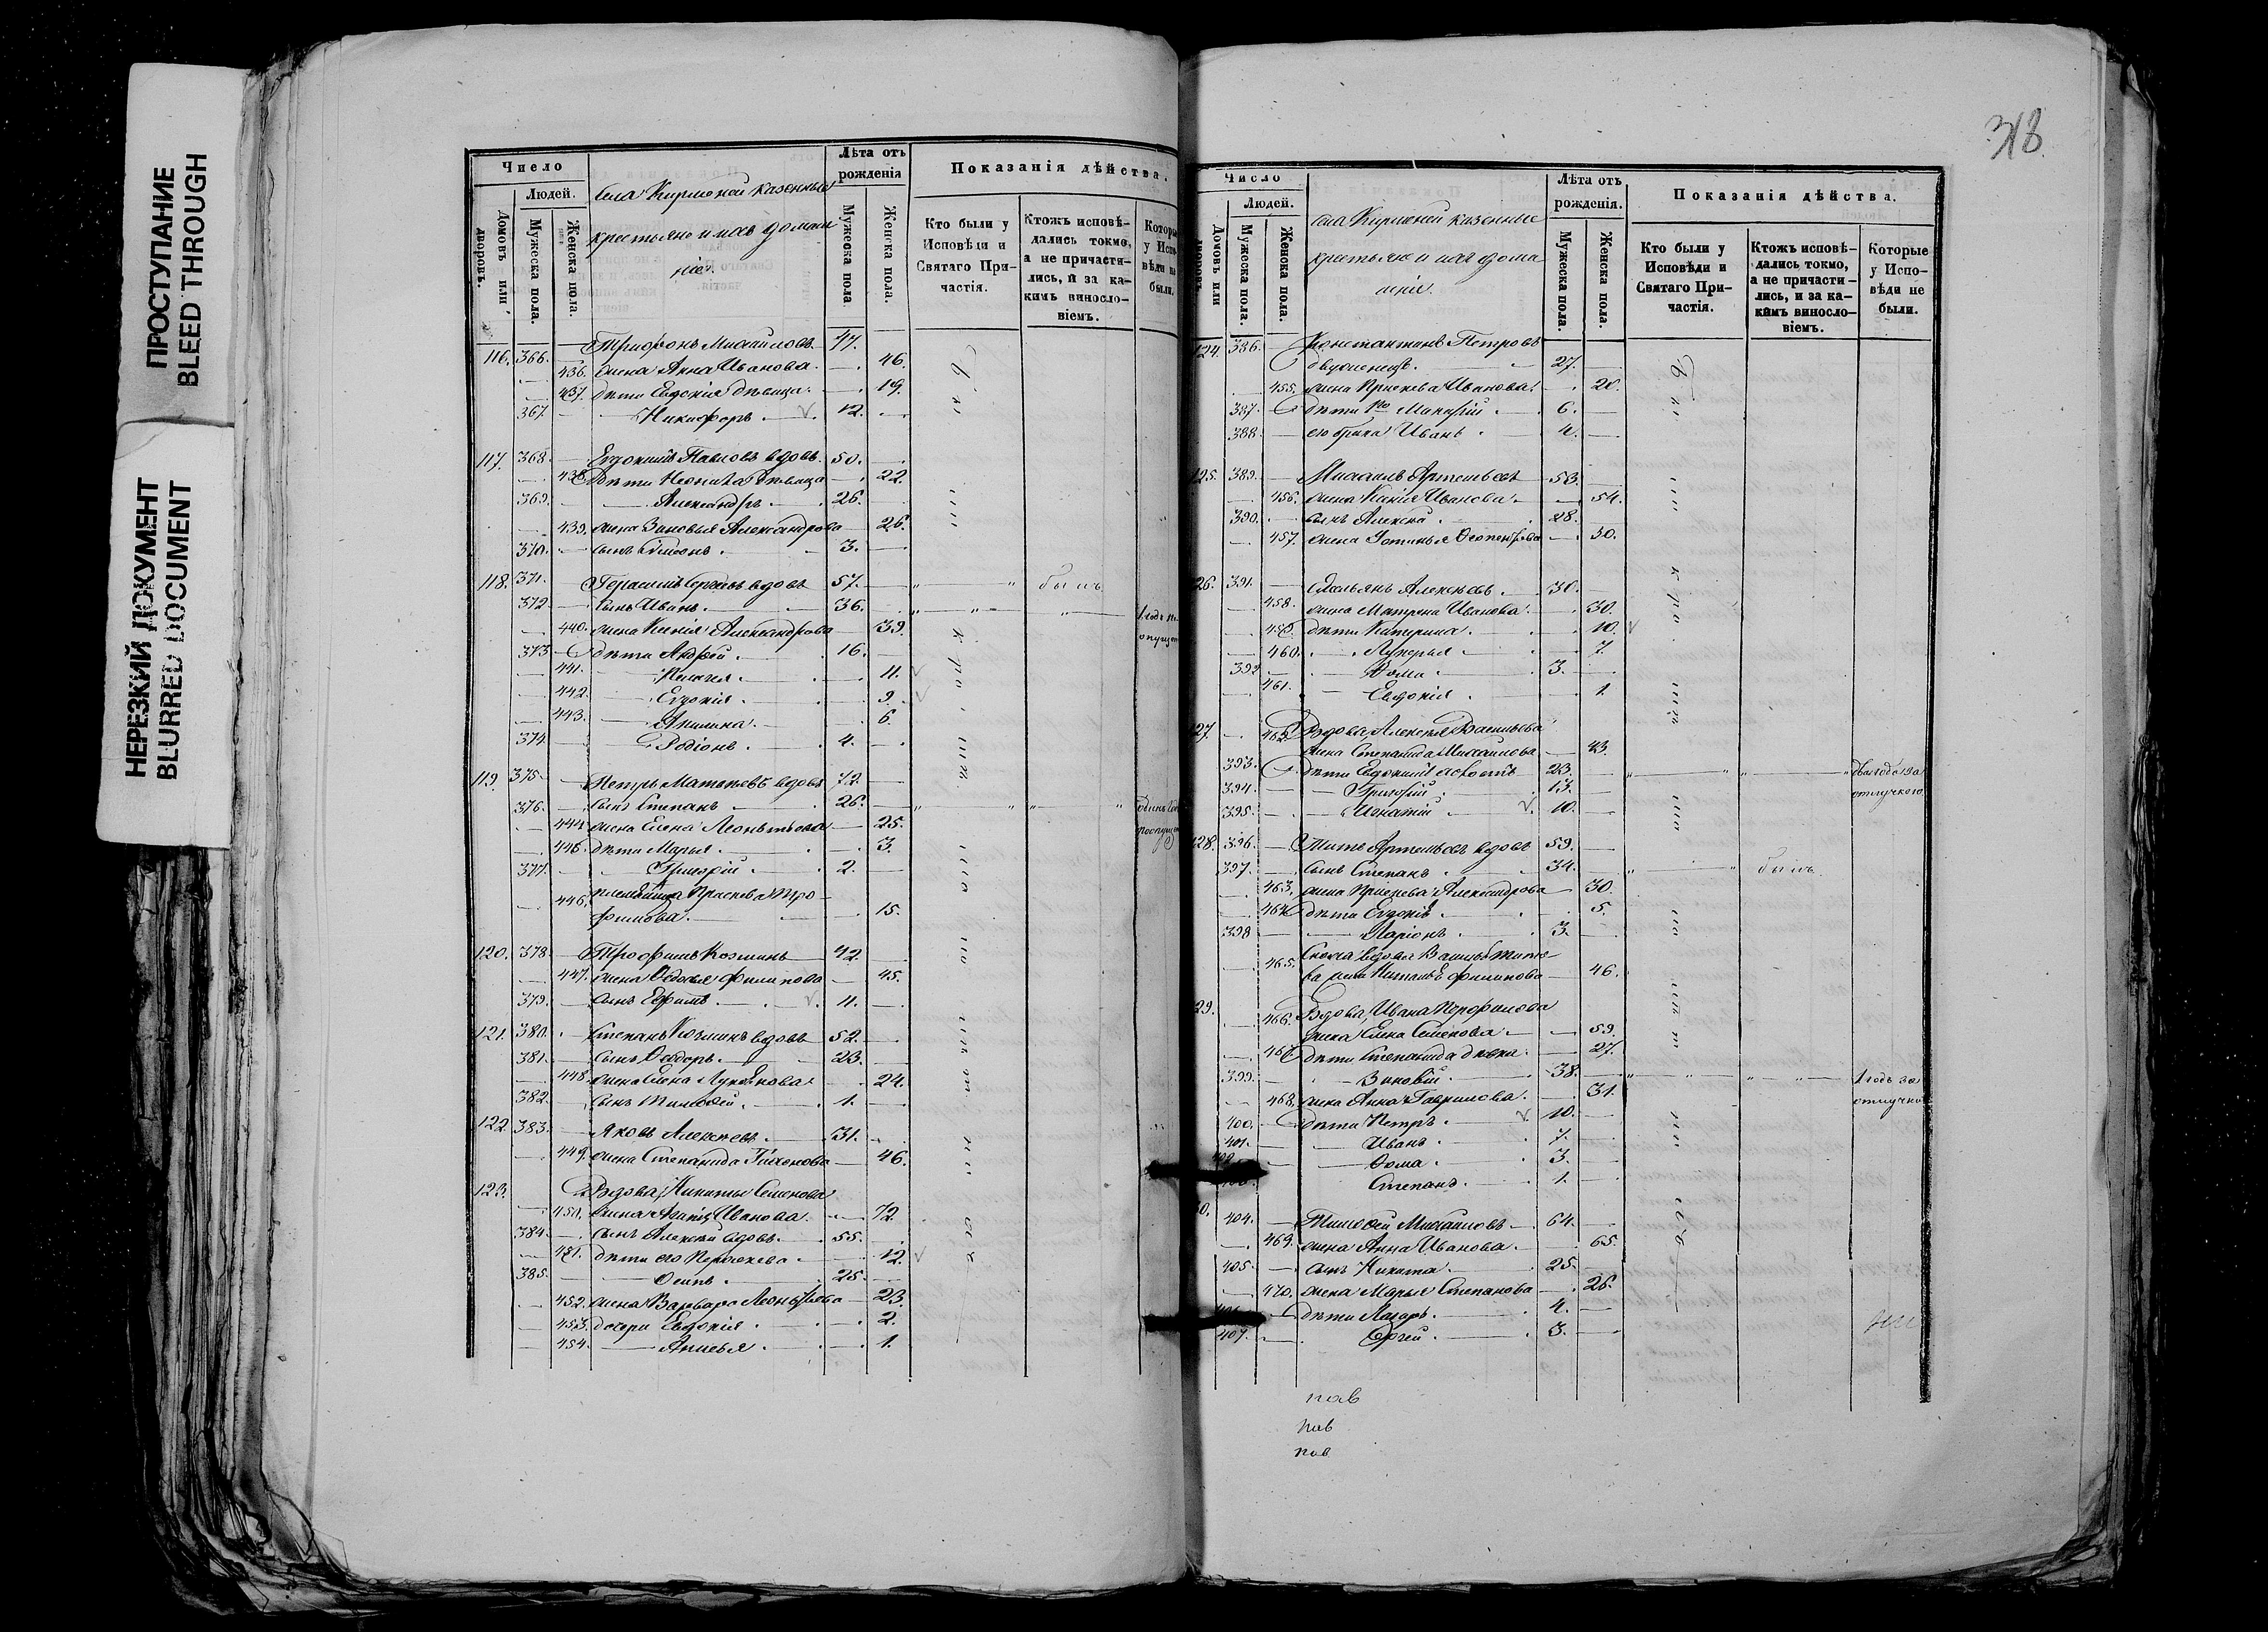 ПРОСТУПАНИЕ
BLEED THROUGH
НЕРЕЗКИЙ ДОКУМЕНТ
BLURRED DOCUMENT
Число
Людей.
Домовъ или дворовъ.
Мужеска пола.
Женска пола.
Села казенные
крестьяне и ихъ домаш
нiе.
Лѣта отъ рожденія
Мужеска пола.
Женска пола.
Показанія дѣйства.
Кто были у Исповѣди и Святаго Причастія.
Ктожъ исповѣдались токмо, а не причастились, и за какимъ винословіемъ.
Которые у Исповѣди не были.
116. 366. Трифонъ Михайловъ 47.
436. жена Анна Иванова 46.
437. дѣти Евдокія дѣвица 19.
367. Никифоръ 12.
117. 368. Евдокимъ Павловъ вдовъ 50.
438. дѣти дѣвица 22.
369. Александръ 26.
439. жена Зиновья Александрова 26.
370. сынъ 3.
118. 371. Герасимъ Сергѣевъ вдовъ 57. былъ
372. сынъ Иванъ 36.
440. жена Ксенія Александрова 39.
373. дѣти Андрей 16.
441. Пелагея 11.
442. Евдокія 9.
443. Акилина 6.
374. Родіонъ 4.
119. 375. Петръ Матвѣевъ вдовъ 72.
376. сынъ Степанъ 26.
444. жена Елена Леонтьева 25.
445. дѣти Марья 3.
377. Григорій 2.
446. племянница Прасковья Тро
фимова 15.
120. 378. Трофимъ Козминъ 42.
447. жена Ѳедосья Филипова 45.
379. сынъ Ефимъ 11.
121. 380. Степанъ Козминъ вдовъ 52.
381. сынъ Ѳедоръ 23.
448. жена Елена Лукьянова 24.
382. сынъ Тимоѳей 1.
122. 383. Яковъ Алексѣевъ 31.
449. жена Степанида Тихонова 46.
123. Вдова, Никиты Семенова
450. жена Иванова 72.
384. сынъ Алексѣй вдовъ 55.
451. дѣти его 12.
385. Осипъ 25.
452. жена Варвара Леонтьева 23.
453. дочери Евдокія 2.
454. 1.
318
Число
Людей.
Домовъ или дворовъ.
Мужеска пола.
Женска пола.
Села казенные
крестьяне и ихъ дома
шніе.
Лѣта отъ рожденія.
Мужеска пола.
Женска пола.
Показанія дѣйства.
Кто были у Исповѣди и Святаго Причастія.
Ктожъ исповѣдались токмо, а не причастились, и за какимъ винословіемъ.
Которые у Исповѣди не были.
124. 386. Константинъ Петровъ
двуженецъ 27.
455. жена Прасковья Иванова 20.
387. дѣти 6.
388. его брата Иванъ 4.
125. 389. Михаилъ Артемьевъ 53.
456. жена Ксенія Иванова 54.
390. сынъ Алексѣй 28.
457. жена Устинья 30.
126. 391. Емельянъ Алексѣевъ 30.
458. жена Матрена Иванова 30.
459. дѣти Катерина 10.
460. Лукерья 7.
392. Ѳома 3.
461. Евдокія 1.
127. 462. Вдова, Алексѣя Васильева
жена Степанида Михайлова 43.
393. дѣти Евдокимъ холостъ 23. два года за
отлучкою
394. Григорій 13.
395. Игнатій 10.
128. 396. Титъ Артемьевъ вдовъ 59.
397. сынъ Степанъ 34. былъ
463. жена Прасковья Александрова 30.
464. дѣти Евдокія 5.
398. Ларіонъ 3.
465. Сноха вдова
Филипова 46.
129. 466. Вдова, Ивана Перфилова
жена Елена Семенова 59.
467. дѣти Степанида дѣвка 27.
399. Зиновій 38. 1 годъ за
отлучкою
468. жена Анна Гаврилова 31.
400. дѣти Петръ 10.
401. Иванъ 7.
402. Ѳома 3.
403. Степанъ 1.
130. 404. Тимоѳей Михайловъ 64.
469. жена Анна Иванова 65.
405. сынъ Никита 25.
470. жена Марья Степанова 26.
406. дѣти Лазарь 4.
407. Сергей 3.